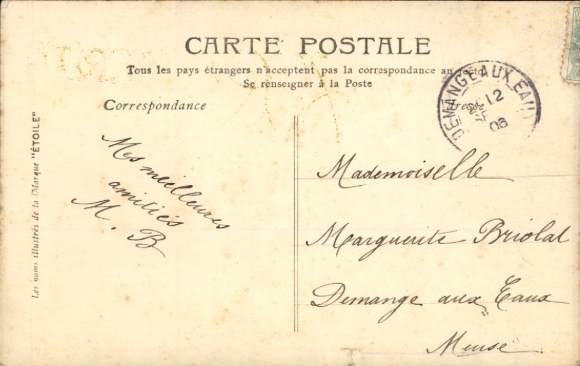 CARTE POSTALE
Tous les pays étrangers n'acceptent pas la correspondance au recto
Se renseigner à la Poste
Correspondance
Adresse
DEMANGE AUX EAUX
12
08
Mes meilleures
amitiés
M. B
Mademoiselle
Marguerite Briolat
Demange aux Eaux
Meuse
Les noms illustrés de la Marque "ÉTOILE"